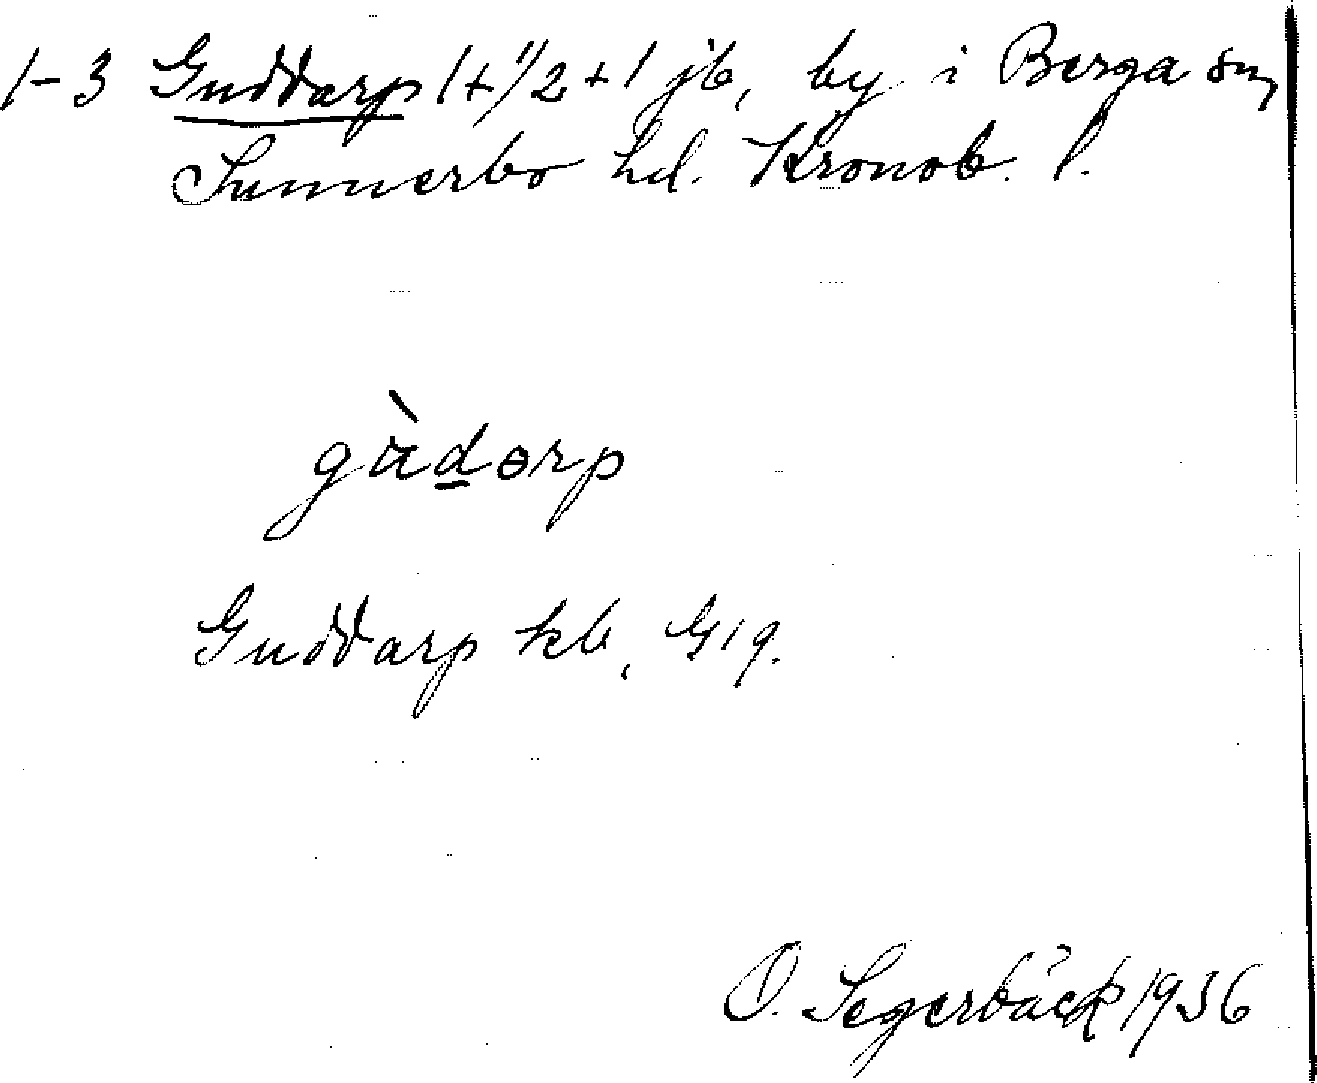 1-3 Guddarp 1+1/2+1 jb, by i Berga sn,
Sunnerbo hd. Kronob. l.
gàdɵrp
Guddarp kb, G19.
O. Segerbäck 1936